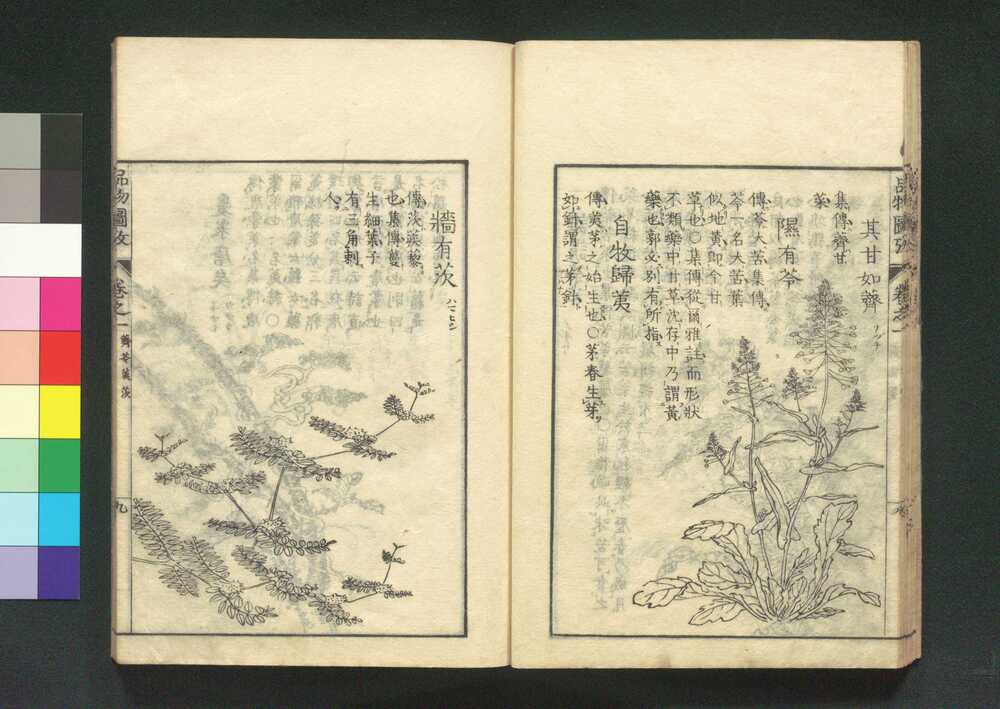 其甘如薺
集傳薺甘
菜
隰有苓
傳苓大苦集傳
苓一名大苦葉
似地黃即今甘
草也〇集傳從爾雅註而形狀
不類藥中甘草沈存中乃謂黃
藥也郭文別有所指
自牧歸荑
傳荑茅之始生也〇茅春生芽
如針謂之茅針
牆有茨
傳茨蒺藜
也集傳蔓
生細葉子
有三角刺
人
品物圖攷
卷之一
薺苓荑茨
九